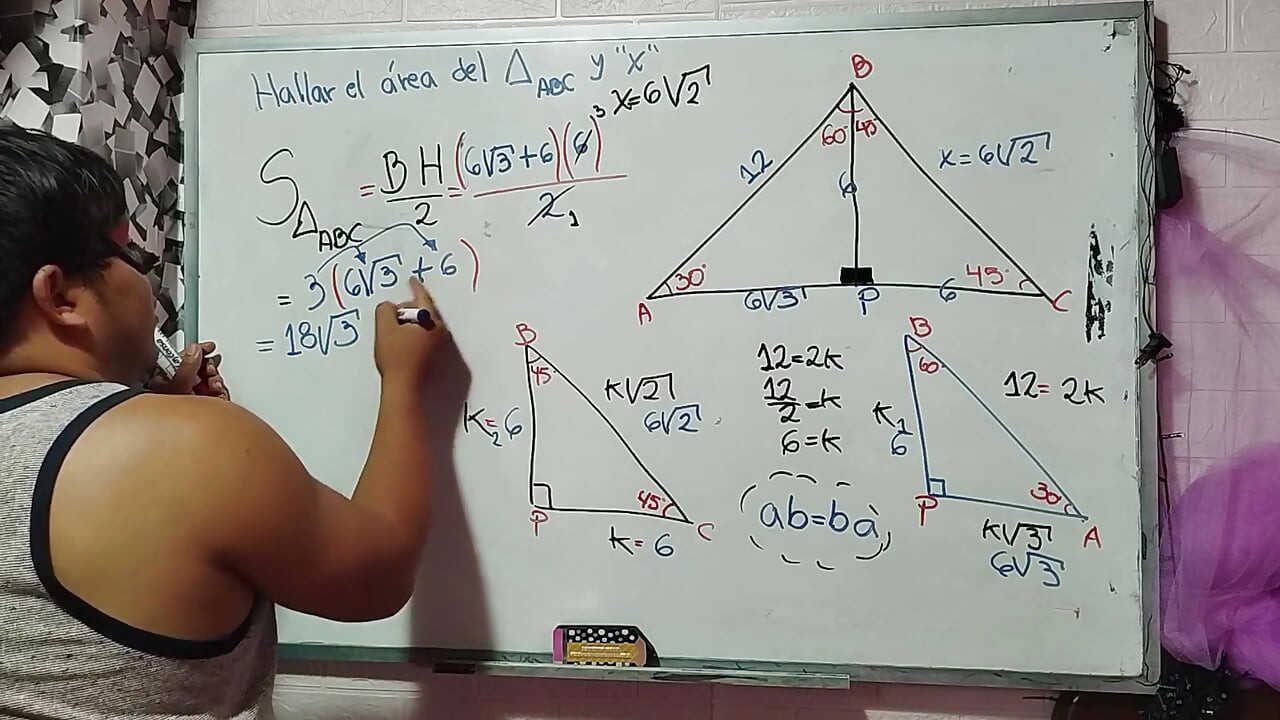 Hallar el área del △ABC y "x"
x=6√2
S△ABC = BH/2 = (6√3+6)(6)³/2 1
= 3(6√3+6)
= 18√3
B
60° 45°
12
6
x=6√2
30°
45°
A
6√3
P
6
C
B
45
K=6
K√2
6√2
45°
P
K=6
C
12=2K
12/2=K
6=K
ab=ba
B
60
K
6
12=2K
30
P
K√3
6√3
A